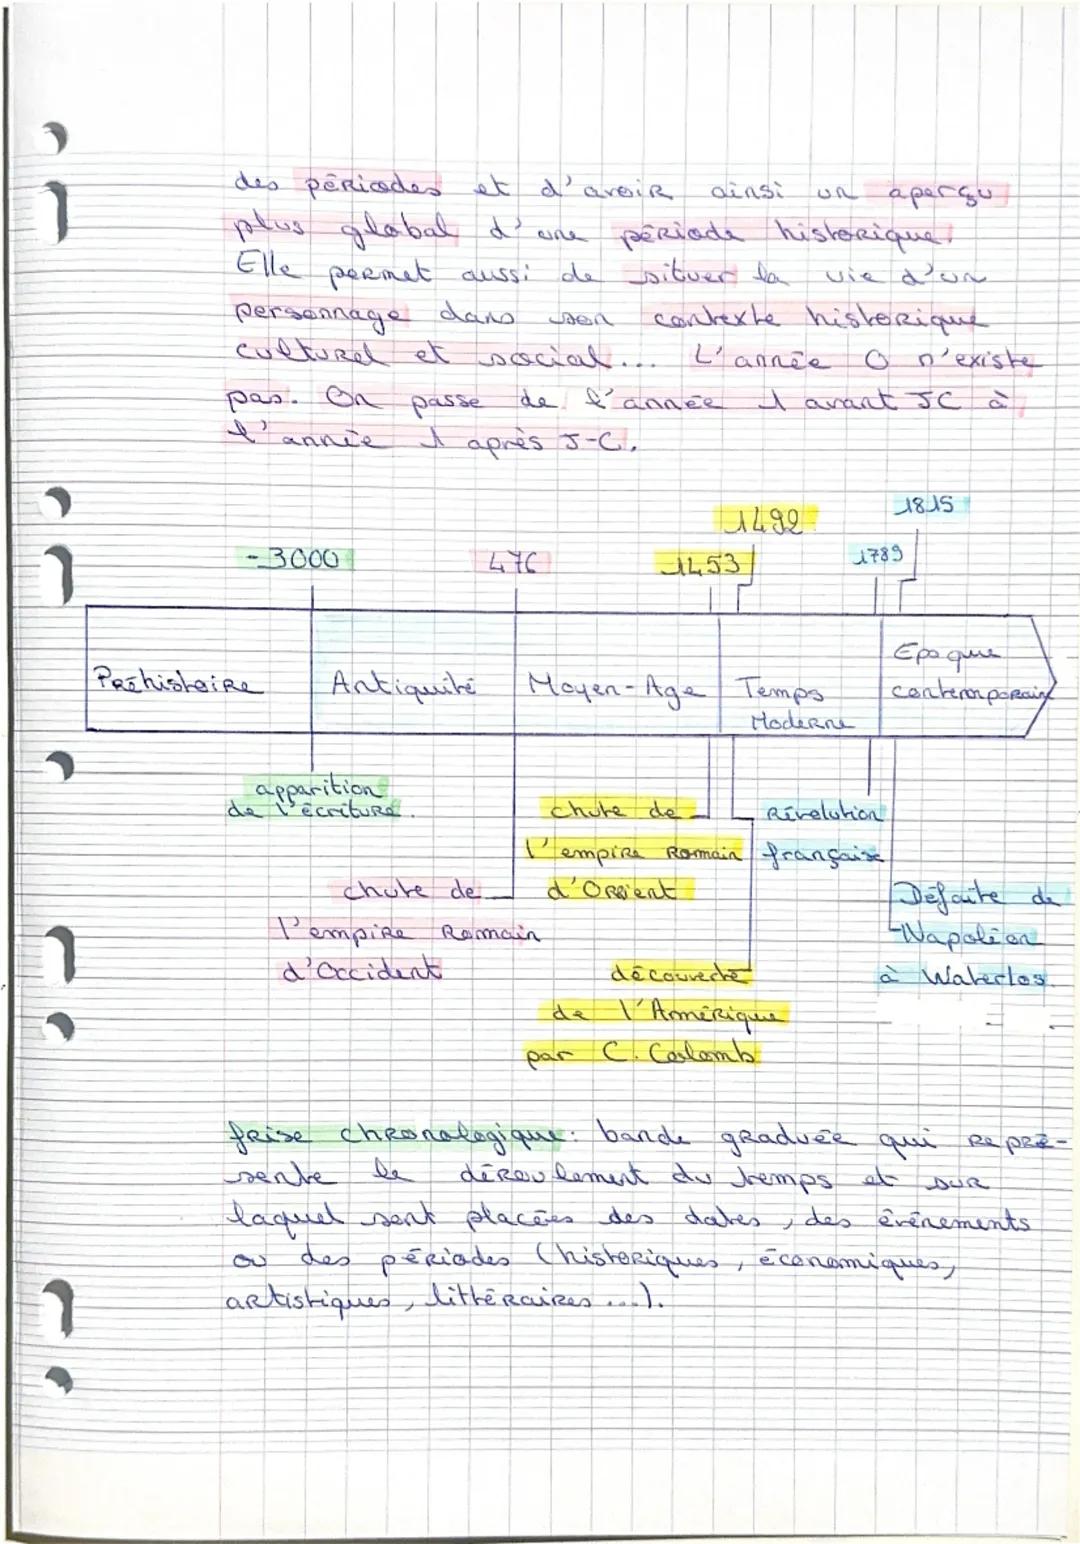 des périodes et d'avoir ainsi un aperçu
plus global d'une période historique.
Elle permet aussi de situer la vie d'un
personnage dans son contexte historique
culturel et social... L'année 0 n'existe
pas. On passe de l'année 1 avant JC à
l'année 1 après J-C.
1815
1492
-3000 476 1453 1789
Epoque
Préhistoire Antiquité Moyen-Age Temps contemporain
Moderne
apparition
de l'écriture.
chute de Révolution
l'empire Romain française
chute de d'Orient Défaite de
l'empire Romain Napoléon
d'Occident découverte à Waterloo.
de l'Amérique
par C. Colomb
frise chronologique: bande graduée qui repré-
sente le déroulement du temps et sur
laquel sont placées des dates, des événements
ou des périodes (historiques, économiques,
artistiques, littéraires...).